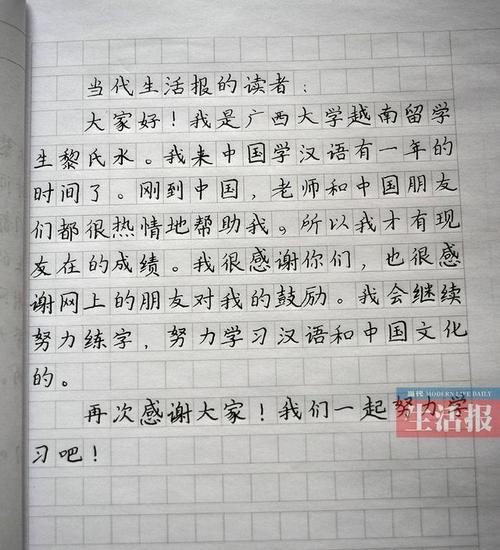 当代生活报的读者：
大家好！我是广西大学越南留学
生黎氏水。我来中国学汉语有一年的
时间了。刚到中国，老师和中国朋友
们都很热情地帮助我。所以我才有现
友在的成绩。我很感谢你们，也很感
谢网上的朋友对我的鼓励。我会继续
努力练字，努力学习汉语和中国文化
的。
再次感谢大家！我们一起努力学
习吧！
当代 MODERN LIVE DAILY
生活报